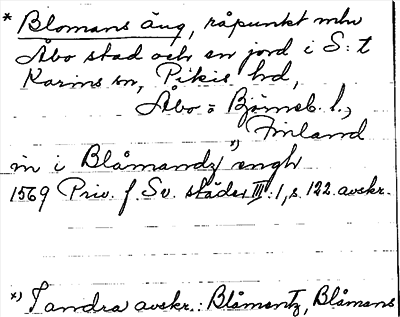 * Blomans äng, råpunkt mln
Åbo stad och en jord i S:t
Karins sn, Pikis hd,
Åbo o Björneb. l.,
Finland
in i Blåmandz *) engh
1569 Priv. f. Sv. städer III:1, s. 122. avskr.
*) I andra avskr.: Blåmantz, Blåmans